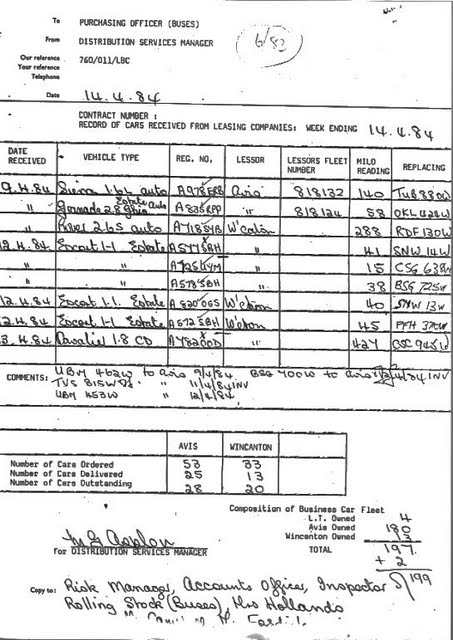 To PURCHASING OFFICER (BUSES)
From DISTRIBUTION SERVICES MANAGER
6/83
Our reference 760/011/LBC
Your reference
Telephone
Date 14.4.84
CONTRACT NUMBER :
RECORD OF CARS RECEIVED FROM LEASING COMPANIES: WEEK ENDING 14.4.84
DATE RECEIVED VEHICLE TYPE REG. NO. LESSOR LESSORS FLEET NUMBER MILO READING REPLACING
9.4.84 Sierra 1.6L auto Avis 818132 140 TUB 880W
" Granada 2.8 Ghia Estate auto A835RPP " 818124 58 OKL 428W
" 265 auto A718SYB W'caton 288 RDF 130W
12.4.84 Escort 1-1 Estate A577SBH " 41 SNW 14W
" " A725 " 15 CSG 638W
" " A578SBH " 38 BSG 725W
12.4.84 Escort 1.1. Estate A820 W'caton 40 SNW 13W
12.4.84 Escort 1-1 Estate A572SBH W'caton 45
Cavalier 1.8 CD A782 " 427
COMMENTS: UBM 462W to Avis 9/4/84. BSG 700W to Avis INV
TVS 815W " 11/4/84 INV
UBM 453W " 12/4/84.
AVIS WINCANTON
Number of Cars Ordered 53 33
Number of Cars Delivered 25 13
Number of Cars Outstanding 28 20
Composition of Business Car Fleet
L.T. Owned 4
Avis Owned 180
Wincanton Owned 13
TOTAL 197
+ 2
199
for DISTRIBUTION SERVICES MANAGER
Copy to: Risk Manager, Accounts Officer, Inspector
Rolling Stock (Buses), Mrs Hollands